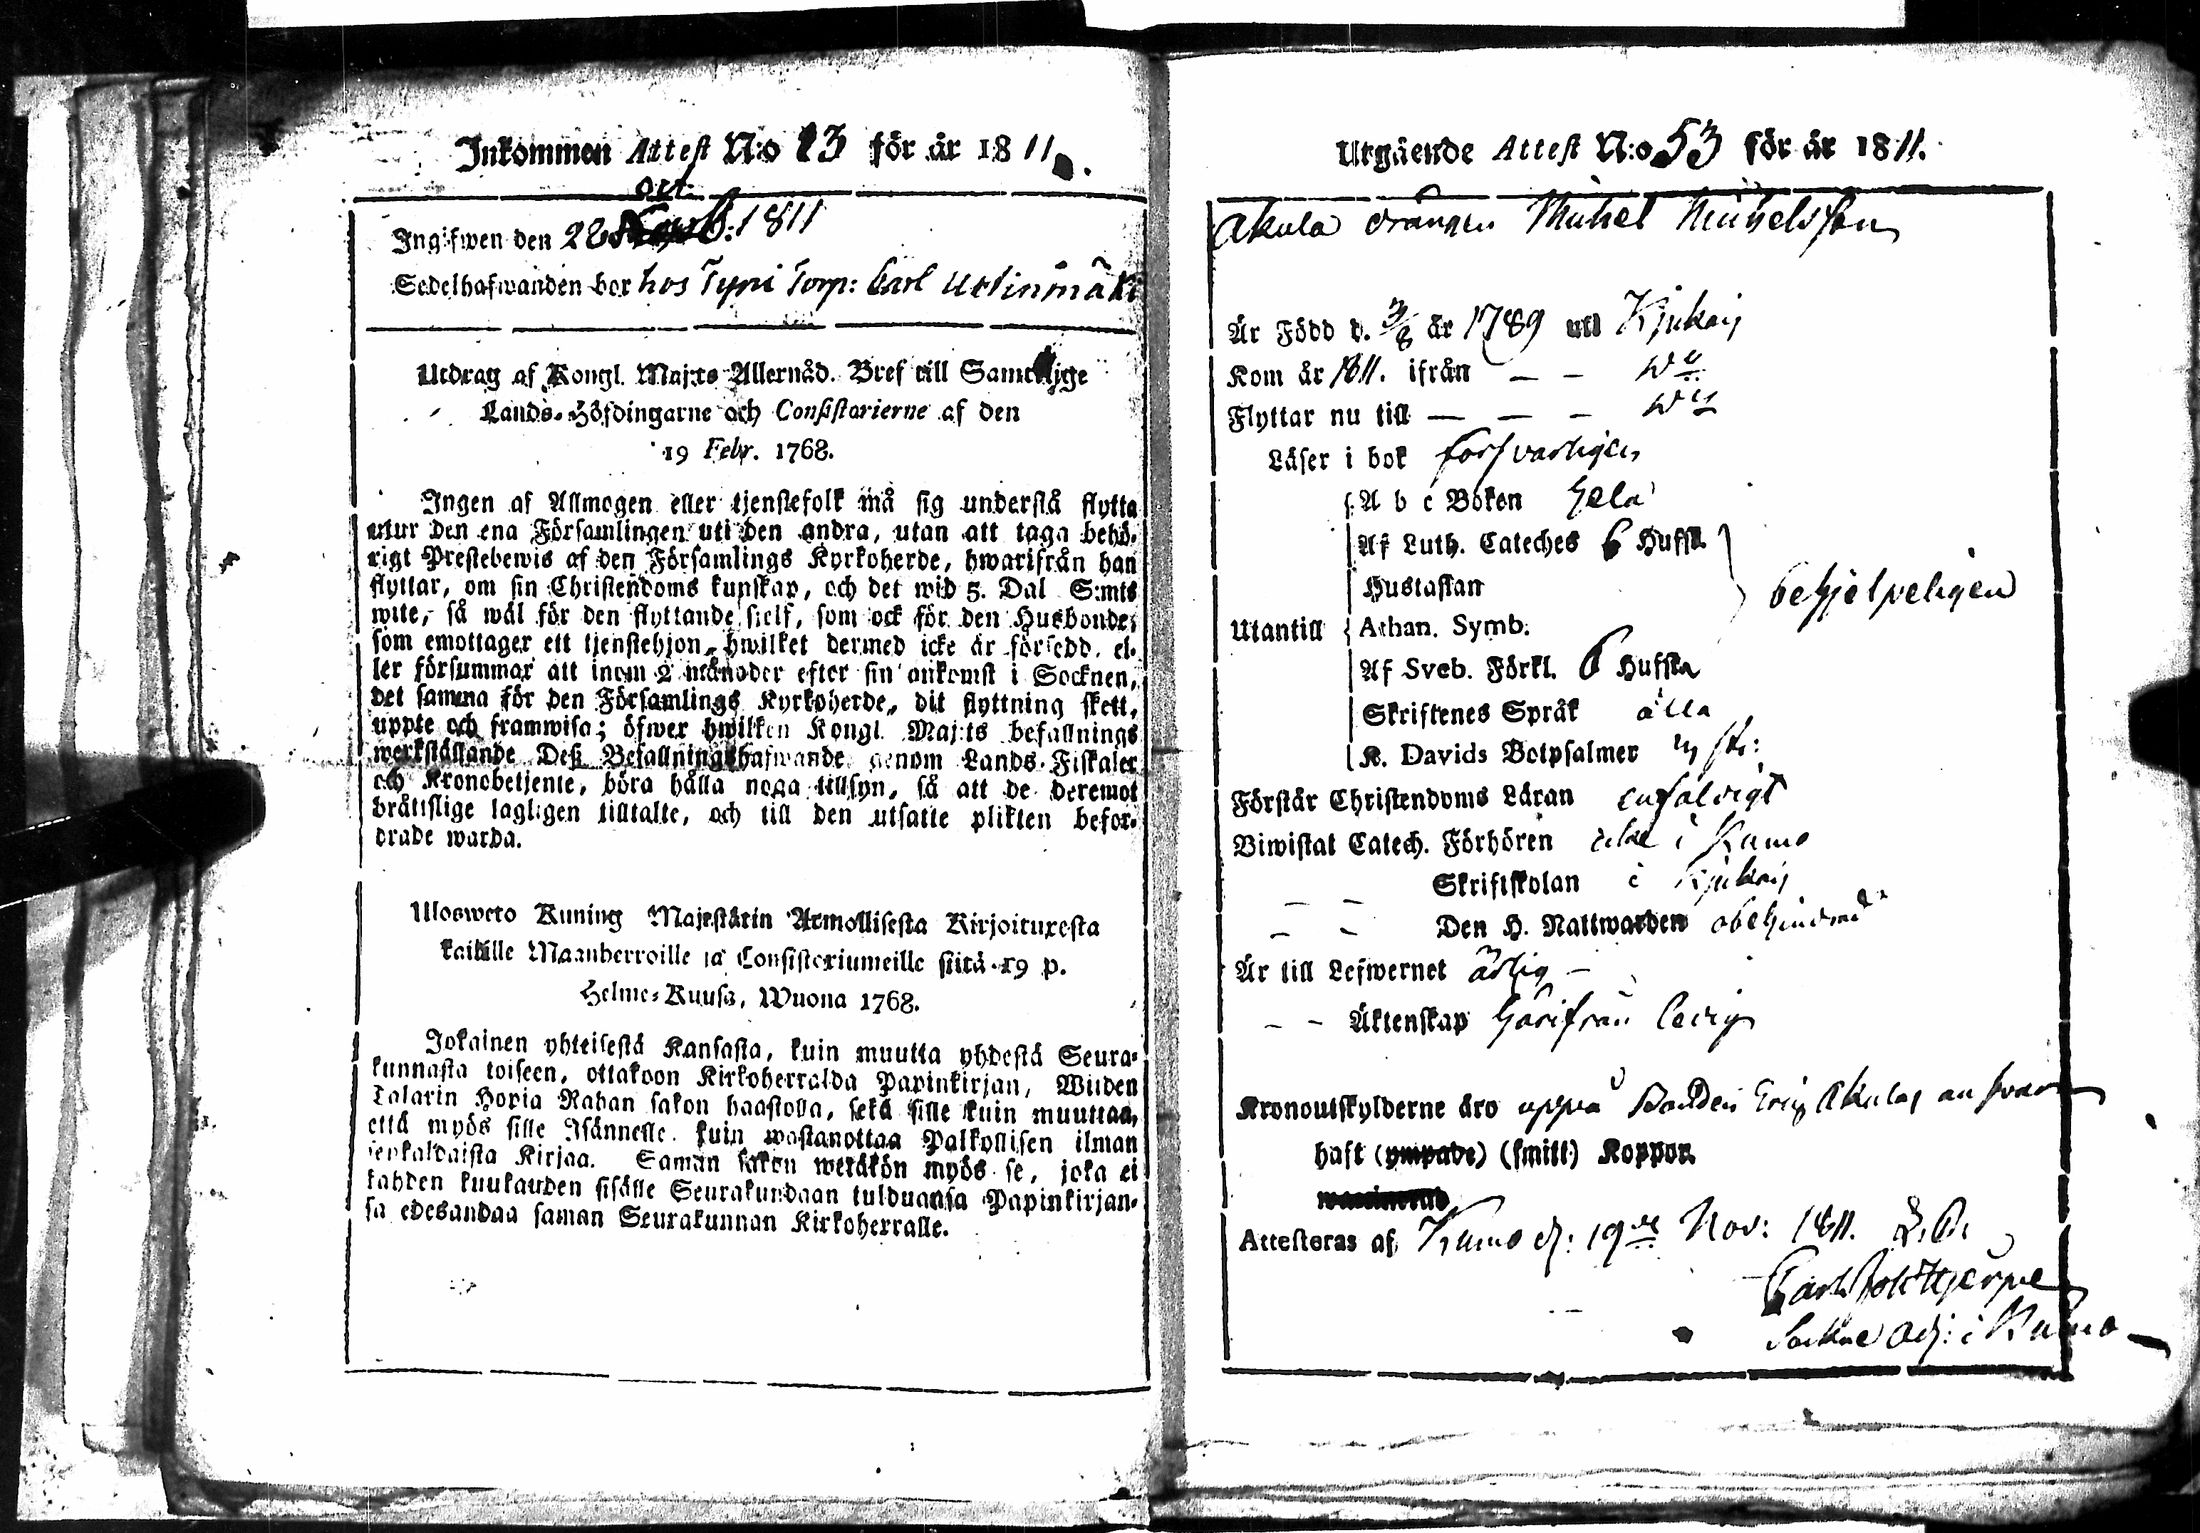 Inkommen Attest N:o 13 för år 1811.
Oct.
Ingifwen den 28 1811
Sedelhafwanden bor hos Tyni Torp: Carl
Utdrag af Kongl. Maj:ts Allernåd. Bref till Samtelige
Lands-Höfdingarne och Consistorierne af den
19 Febr. 1768.
Ingen af Allmogen eller tjenstefolk må sig understå flytta
utur den ena Församlingen uti den andra, utan att taga behö-
rigt Prestebewis af den Församlings Kyrkoherde, hwarifrån han
flyttar, om sin Christendoms kunskap, och det wid 5. Dal S:mts
wite, så wäl för den flyttande sielf, som ock för den Husbonde,
som emottager ett tjenstehjon, hwilket dermed icke är försedd, el-
ler försummar att inom 2 månader efter sin ankomst i Socknen,
det samma för den Församlings Kyrkoherde, dit flyttning skett,
uppte och framwisa; öfwer hwilken Kongl. Maj:ts befallnings
werkställande Deß Befallningshafwande genom Lands-Fiskaler
och Kronobetjente, böra hålla noga tillsyn, så att de deremot
brätslige lagligen tilltalte, och till den utsatte plikten befor-
drade warda.
Uloswcto Kuning Majestätin Armollisesta Kirjoituxesta
kaikille Maanherroille ja Consistoriumeille siitä 19 p.
Helme-Kuusa, Wuona 1768.
Jokainen yhteisestä Kansasta, kuin muutta yhdestä Seura-
kunnasta toiseen, ottakoon Kirkoherralda Papinkirjan, Wiiden
Talarin Hopia Rahan sakon haastolla, sekä sille kuin muuttaa,
että myös sille Isännelle, kuin wastanottaa Palkollisen ilman
senkaldaista Kirjaa. Saman sakon wetäkön myös se, joka ei
kahden kuukauden sisälle Seurakundaan tulduansa Papinkirjan-
sa edesandaa saman Seurakunnan Kirkoherralle.
Utgående Attest N:o 53 för år 1811.
Akula drängen Michel Michelsson
Är Född d. 3/8 år 1789 uti Kjukais
Kom år 1811. ifrån — —
Flyttar nu till — — —
Läser i bok försvarligen
A b c Boken hela
Af Luth. Cateches 6 Hufst.
Hustaflan
behjelpeligen
Utantill Athan. Symb.
Af Sveb. Förkl. 6 Hufst.
Skriftenes Språk alla
K. Davids Botpsalmer
Förstår Christendoms Läran enfaldigt
Biwistat Catech. Förhören icke i Kumo
— — Skriftskolan i Kjukais
— — Den H. Nattwarden obehindrad
Är till Lefwernet ärlig —
— — Äktenskap härifrån ledig
Kronoutskylderne äro uppå Bonden Eric Akulas ansvar
haft (ympade) (smitt) Koppor.
Attesteras af Kumo d: 19de Nov: 1811.
Carl
adj: i Kumo